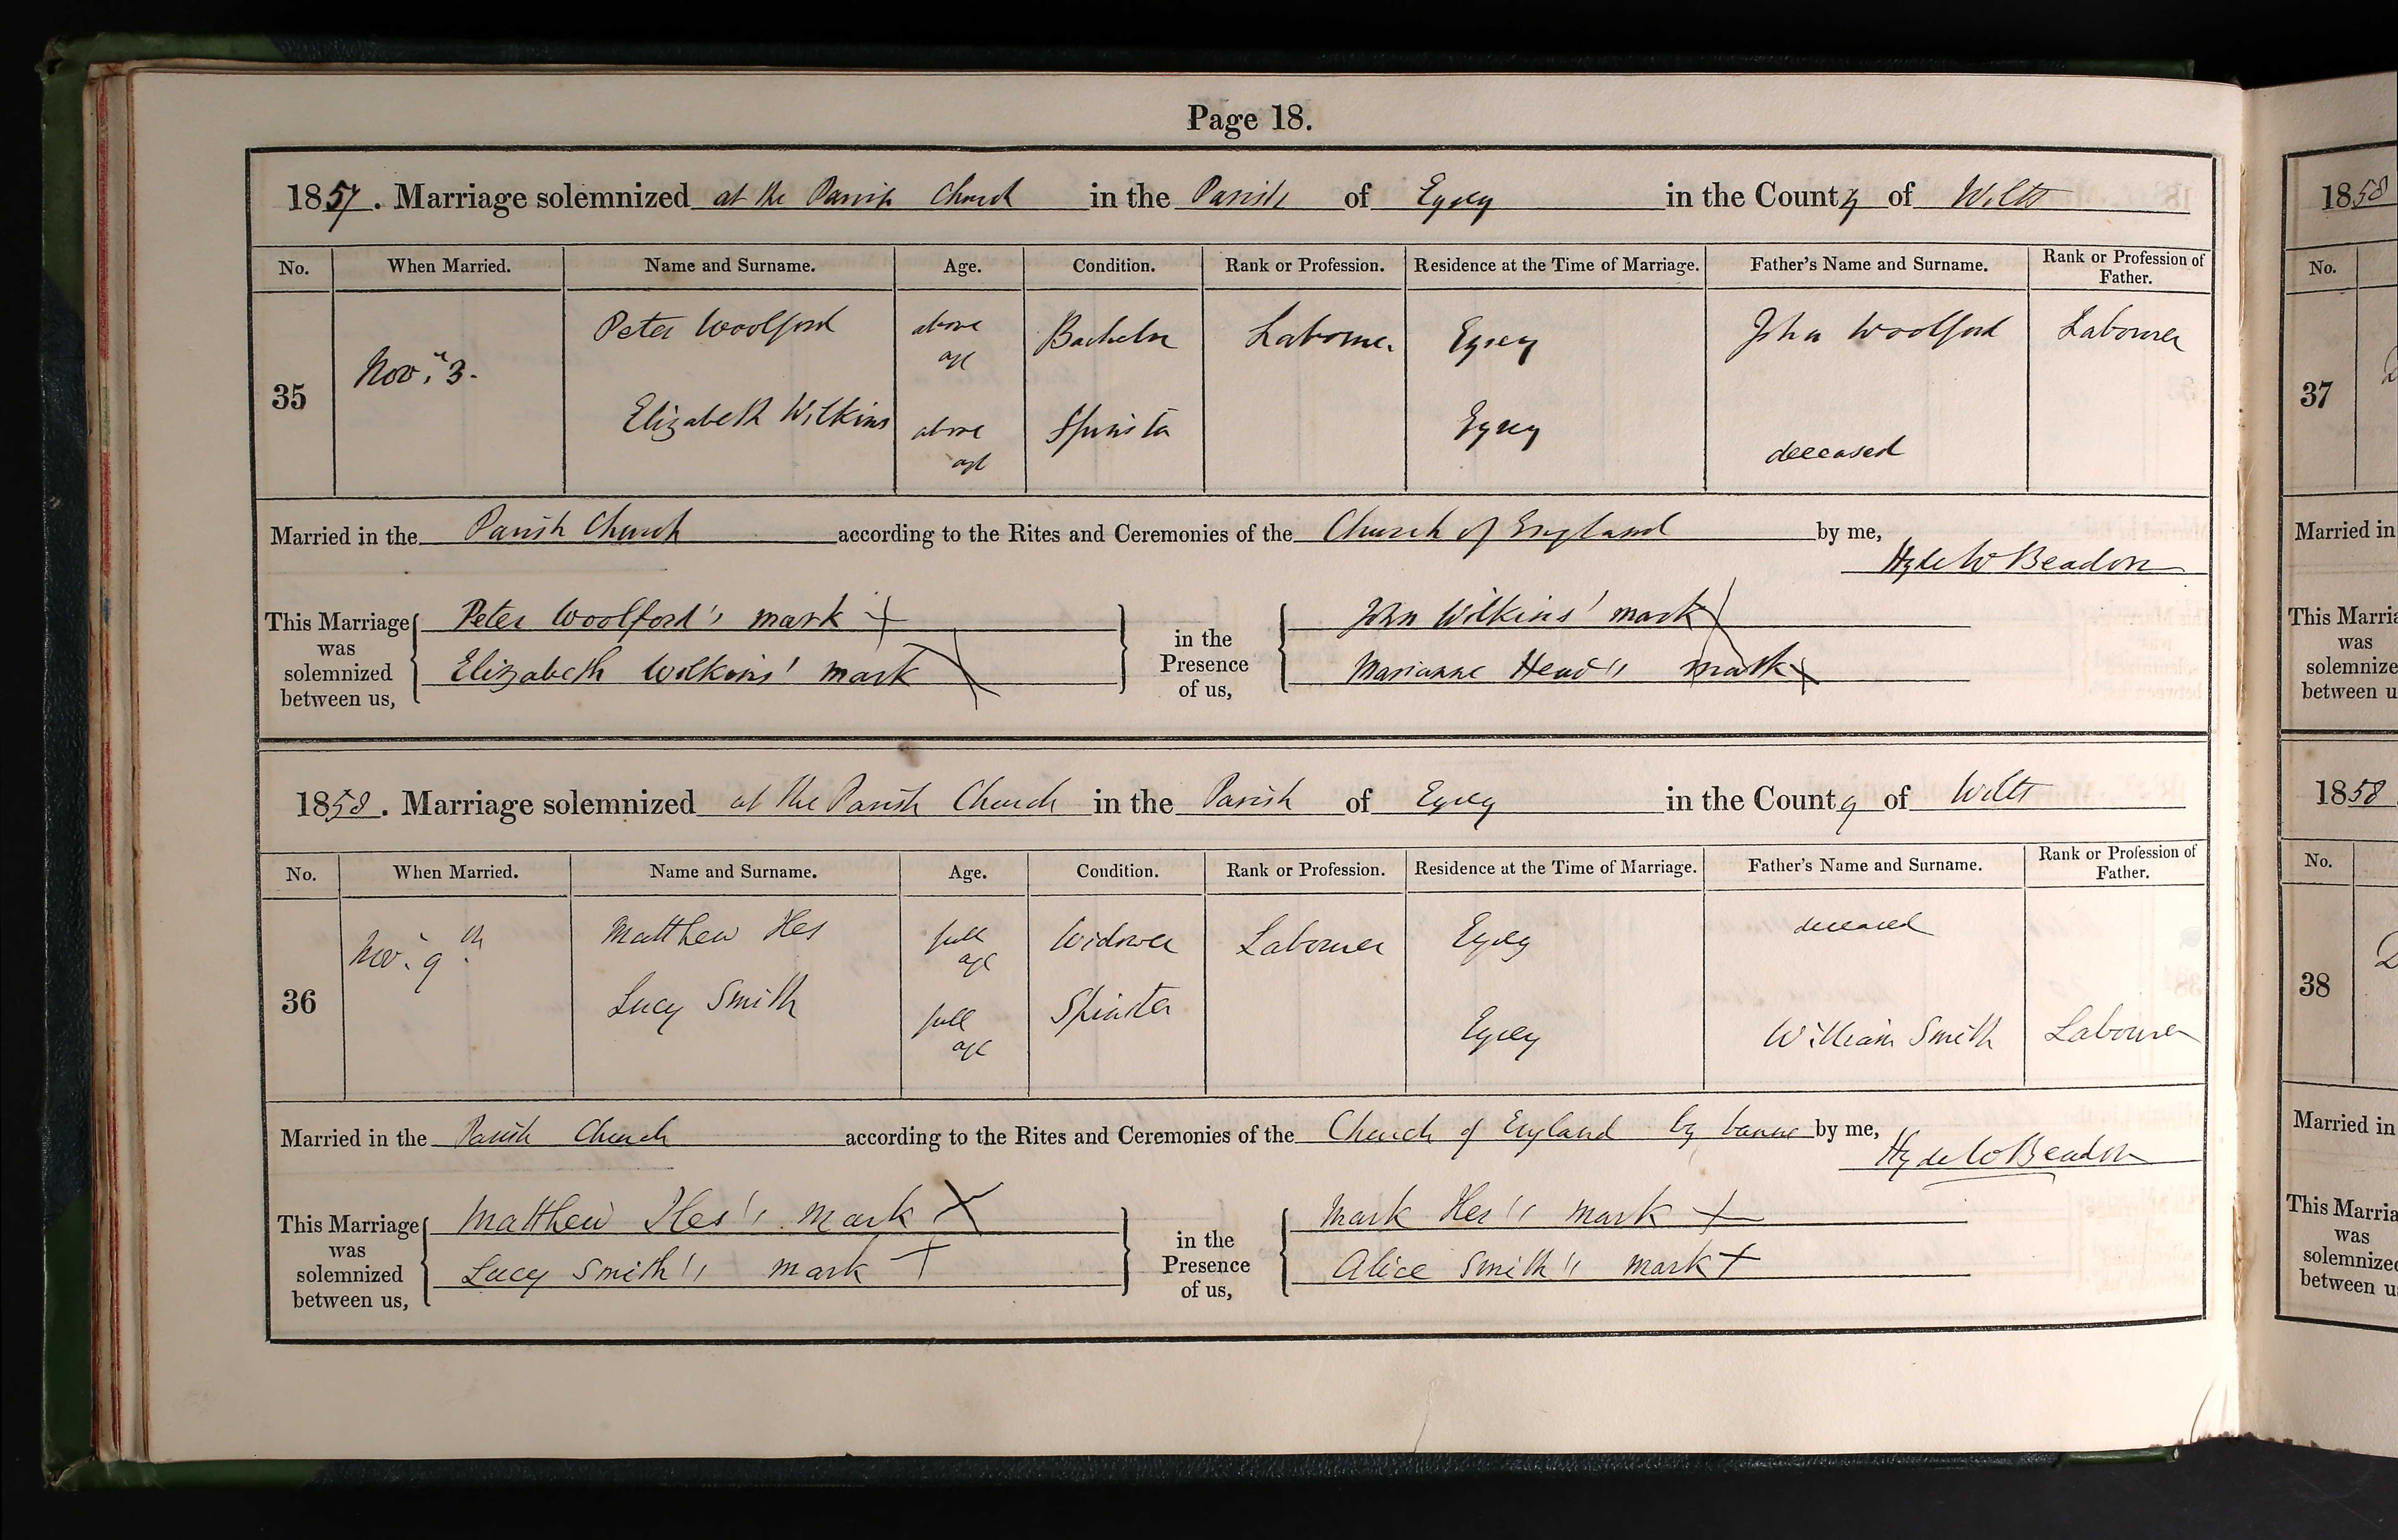 Page 18.
1857. Marriage solemnized at the Parish Church in the Parish of Eysey in the County of Wilts
No. When Married. Name and Surname. Age. Condition. Rank or Profession. Residence at the Time of Marriage. Father's Name and Surname. Rank or Profession of Father.
35 Novr. 3. Peter Woolford above age Bachelor Labourer Eysey John Woolford Labourer
Elizabeth Wilkins above age Spinster Eysey deceased
Married in the Parish Church according to the Rites and Ceremonies of the Church of England by me,
Hyde W Beadon
This Marriage was solemnized between us, Peter Woolford's mark in the Presence of us, John Wilkins' mark
Elizabeth Wilkins' mark Marianne Head's mark
1858. Marriage solemnized at the Parish Church in the Parish of Eysey in the County of Wilts
No. When Married. Name and Surname. Age. Condition. Rank or Profession. Residence at the Time of Marriage. Father's Name and Surname. Rank or Profession of Father.
36 Novr. 9th. Matthew Iles full age Widower Labourer Eysey deceased
Lucy Smith full age Spinster Eysey William Smith Labourer
Married in the Parish Church according to the Rites and Ceremonies of the Church of England by banns by me,
Hyde W Beadon
This Marriage was solemnized between us, Matthew Iles's mark X in the Presence of us, Mark Iles's mark
Lucy Smith's mark Alice Smith's mark
1858
No.
37
Married in
This Marria
was
solemnize
between u
1858
No.
38
Married in
This Marria
was
solemnized
between u